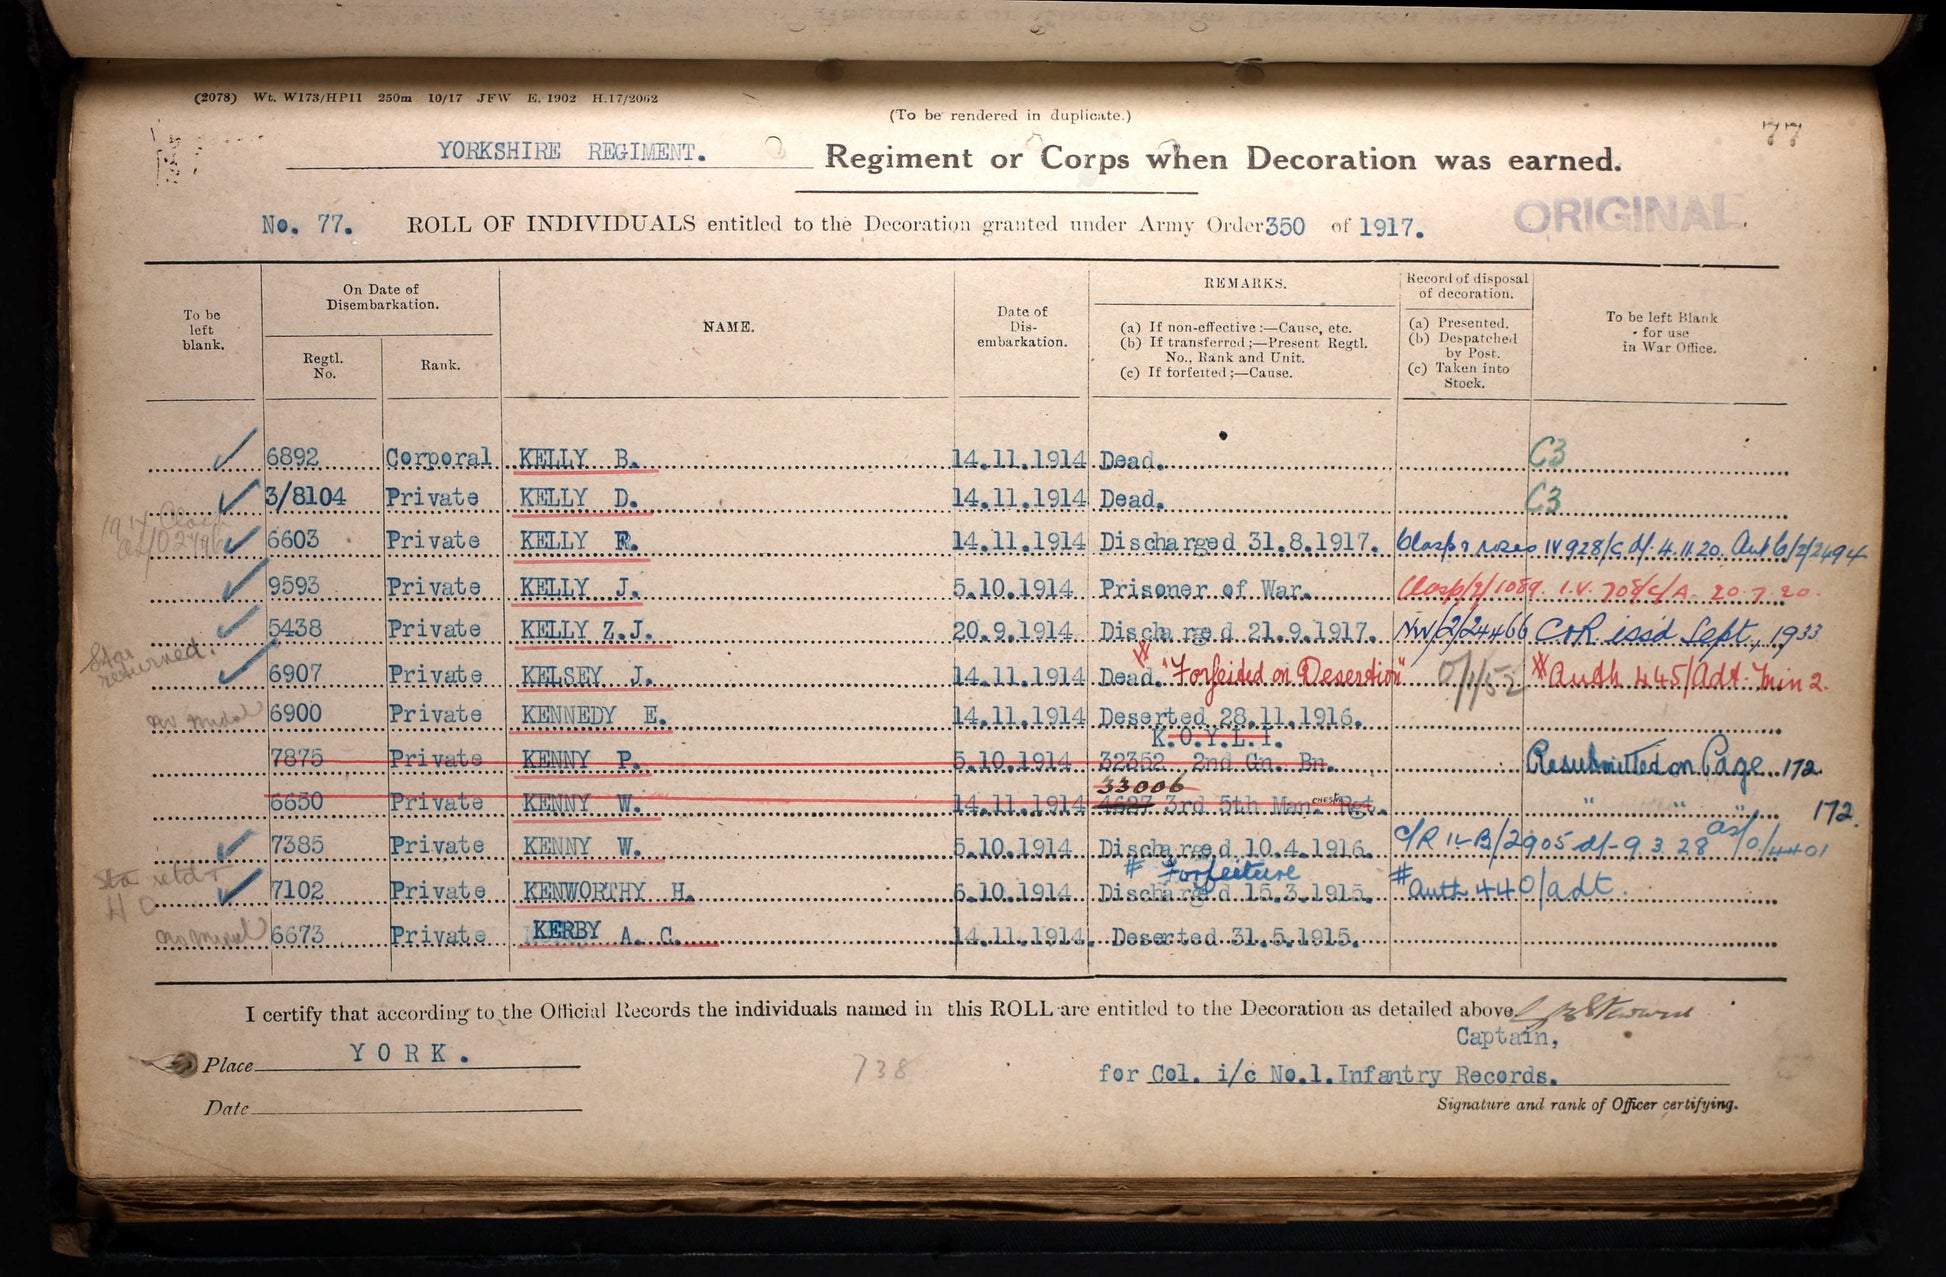 (2078) Wt. W173/HP11 250m 10/17 JFW E. 1902 H.17/2062
(To be rendered in duplicate.)
77
YORKSHIRE REGIMENT. Regiment or Corps when Decoration was earned.
No. 77. ROLL OF INDIVIDUALS entitled to the Decoration granted under Army Order 350 of 1917. ORIGINAL
To be left blank.
On Date of Disembarkation.
Regtl. No.
Rank.
NAME.
Date of Dis-embarkation.
REMARKS.
(a) If non-effective:—Cause, etc.
(b) If transferred;—Present Regtl. No., Rank and Unit.
(c) If forfeited;—Cause.
Record of disposal of decoration.
(a) Presented.
(b) Despatched by Post.
(c) Taken into Stock.
To be left Blank for use in War Office.
6892 Corporal KELLY B. 14.11.1914 Dead. C3
3/8104 Private KELLY D. 14.11.1914 Dead. C3
6603 Private KELLY R. 14.11.1914 Discharged 31.8.1917. Clasp & roses IV 928/C d/. 4.11.20. Auth 6/2/2494
9593 Private KELLY J. 5.10.1914 Prisoner of War. Clasp/2/1089. I.V. 708/C/A. 20.7.20.
5438 Private KELLY Z.J. 20.9.1914 Discharged 21.9.1917. NW/2/24466 CoR iss'd Sept., 1933
Star returned.
6907 Private KELSEY J. 14.11.1914 Dead. "Forfeited on Desertion" # Auth 445/Adt. Min 2.
No Medal 6900 Private KENNEDY E. 14.11.1914 Deserted 28.11.1916.
K.O.Y.L.I.
7875 Private KENNY P. 5.10.1914 32352 2nd Gn. Bn. Resubmitted on Page 172
33006
6650 Private KENNY W. 14.11.1914 4687 3rd 5th Manchester Rgt. " " " 172.
7385 Private KENNY W. 5.10.1914 Discharged 10.4.1916. C/R IV B/2905 d/- 9.3.28
# Forfeiture
7102 Private KENWORTHY H. 6.10.1914 Discharged 15.3.1915. # Auth 440/adt.
No Medal 6673 Private KERBY A. C. 14.11.1914. Deserted 31.5.1915.
I certify that according to the Official Records the individuals named in this ROLL are entitled to the Decoration as detailed above
Captain,
Place YORK.
738
for Col. i/c No.1. Infantry Records.
Date
Signature and rank of Officer certifying.